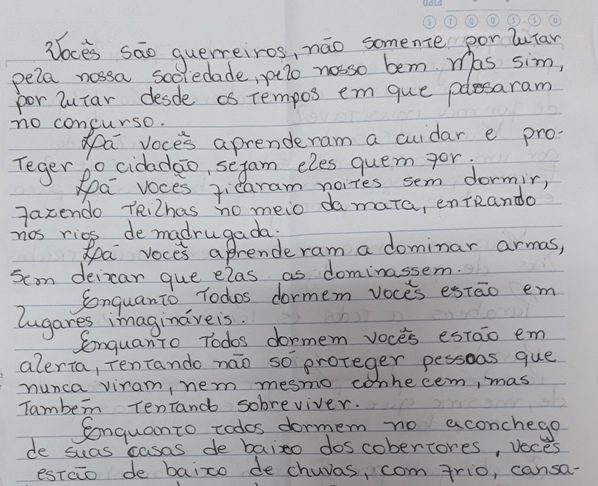 Vocês são guerreiros, não somente por lutar
pela nossa sociedade, pelo nosso bem. Mas sim,
por lutar desde os tempos em que passaram
no concurso.
Lá vocês aprenderam a cuidar e pro-
teger o cidadão, sejam eles quem for.
Lá vocês ficaram noites sem dormir,
fazendo trilhas no meio da mata, entrando
nos rios de madrugada.
Lá vocês aprenderam a dominar armas,
sem deixar que elas as dominassem.
Enquanto todos dormem vocês estão em
lugares imagináveis.
Enquanto todos dormem vocês estão em
alerta, tentando não só proteger pessoas que
nunca viram, nem mesmo conhecem, mas
também tentand sobreviver.
Enquanto todos dormem no aconchego
de suas casas de baixo dos cobertores, vocês
estão de baixo de chuvas, com frio, cansa-